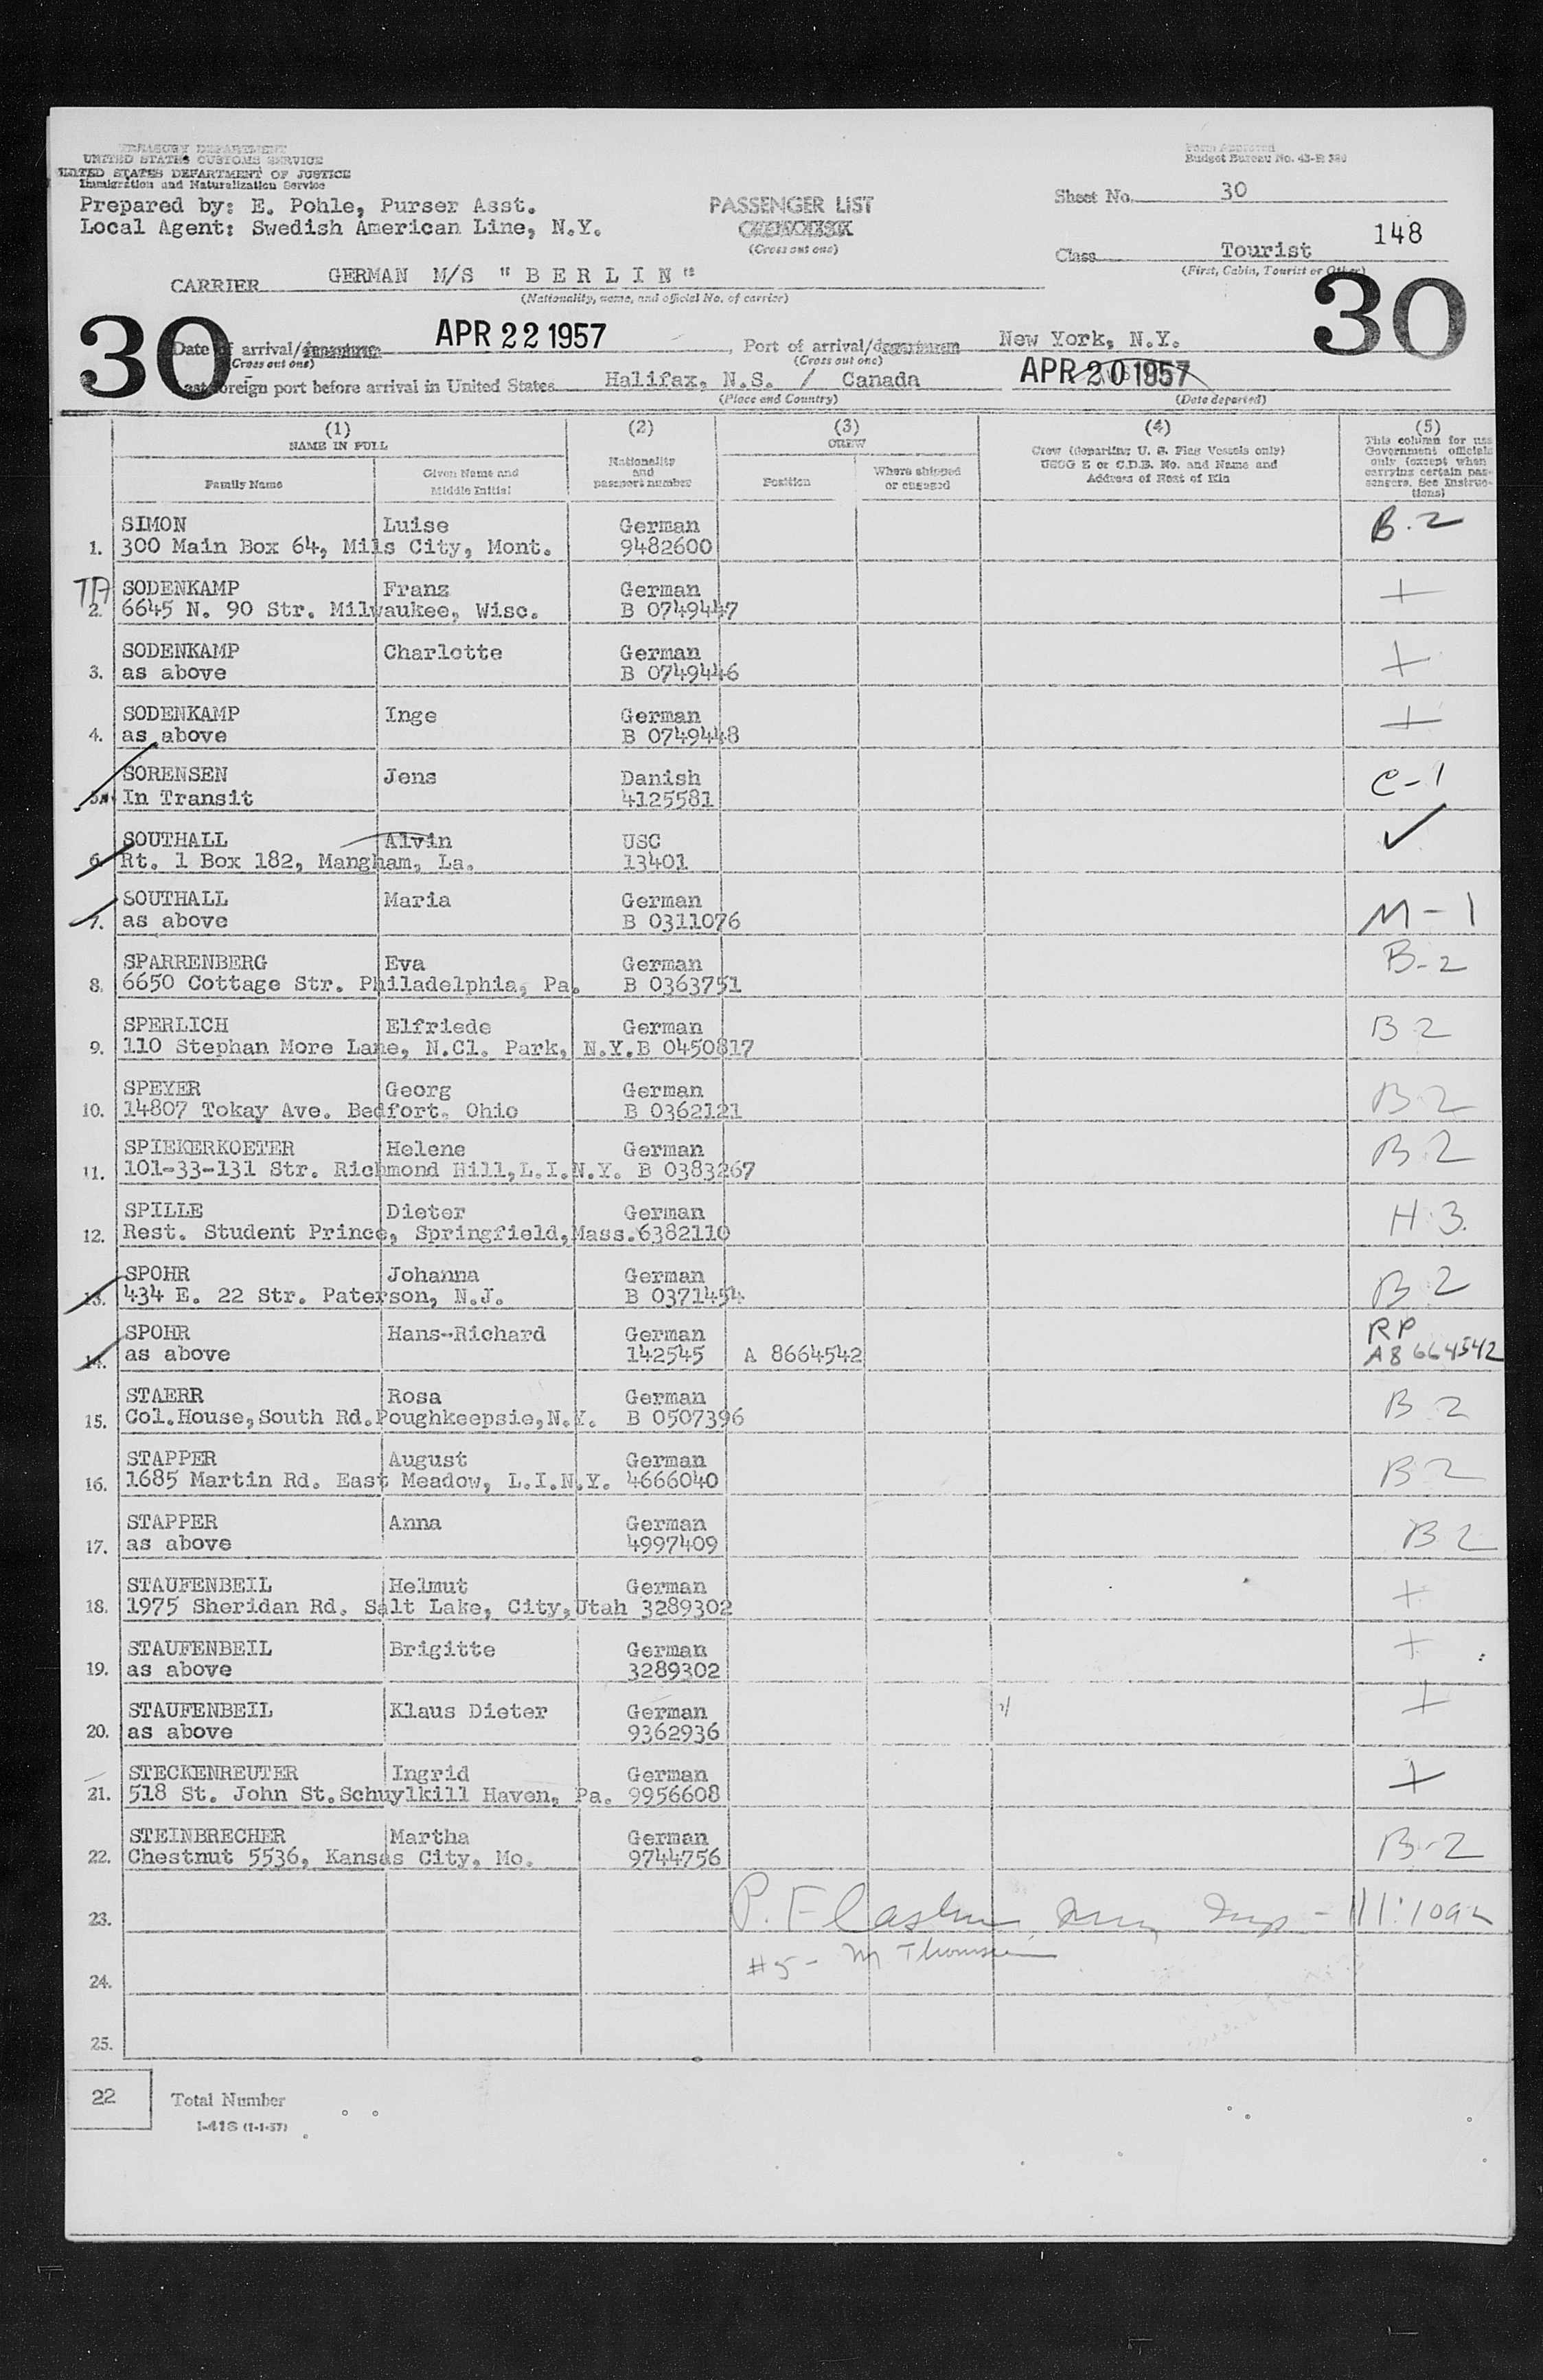 TREASURY DEPARTMENT
UNITED STATES CUSTOMS SERVICE
UNITED STATES DEPARTMENT OF JUSTICE
Immigration and Naturalization Service
Form Approved
Budget Bureau No. 43-R
Prepared by: E. Pohle, Purser Asst.
Local Agent: Swedish American Line, N.Y.
PASSENGER LIST
(Cross out one)
Sheet No. 30
148
Class Tourist
(First, Cabin, Tourist or Other)
CARRIER GERMAN M/S "B E R L I N"
(Nationality, name, and official No. of carrier)
30
30
Date of arrival/departure APR 22 1957, Port of arrival/departure New York, N.Y.
(Cross out one) (Cross out one)
Last foreign port before arrival in United States Halifax, N.S. / Canada APR 20 1957
(Place and Country) (Date departed)
(1) (2) (3) (4) (5)
NAME IN FULL
Family Name
Given Name and Middle Initial
Nationality and passport number
CREW
Position
Where shipped or engaged
Crew (departing U. S. Flag Vessels only)
USCG Z or C.D.B. No. and Name and
Address of Next of Kin
This column for use
Government officials
only (except when
carrying certain pas-
sengers. See Instruc-
tions)
SIMON Luise German B.2
1. 300 Main Box 64, Mils City, Mont. 9482600
SODENKAMP Franz German +
2. 6645 N. 90 Str. Milwaukee, Wisc. B 0749447
SODENKAMP Charlotte German +
3. as above B 0749446
SODENKAMP Inge German +
4. as above B 0749448
SORENSEN Jens Danish C-1
5. In Transit 4125581
SOUTHALL Alvin USC ✓
6. Rt. 1 Box 182, Mangham, La. 13401
SOUTHALL Maria German M-1
7. as above B 0311076
SPARRENBERG Eva German B-2
8. 6650 Cottage Str. Philadelphia, Pa. B 0363751
SPERLICH Elfriede German B 2
9. 110 Stephan More Lane, N.Cl. Park, N.Y.B 0450817
SPEYER Georg German B 2
10. 14807 Tokay Ave. Bedfort. Ohio B 0362121
SPIEKERKOETER Helene German B 2
11. 101-33-131 Str. Richmond Hill,L.I.N.Y. B 0383267
SPILLE Dieter German H-3.
12. Rest. Student Prince, Springfield,Mass.6382110
SPOHR Johanna German B 2
13. 434 E. 22 Str. Paterson, N.J. B 0371454
SPOHR Hans-Richard German RP
14. as above 142545 A 8664542 A8 664542
STAERR Rosa German B 2
15. Col.House,South Rd.Poughkeepsie,N.Y. B 0507396
STAPPER August German B 2
16. 1685 Martin Rd. East Meadow, L.I.N.Y. 4666040
STAPPER Anna German B 2
17. as above 4997409
STAUFENBEIL Helmut German +
18. 1975 Sheridan Rd. Salt Lake, City,Utah 3289302
STAUFENBEIL Brigitte German +
19. as above 3289302
STAUFENBEIL Klaus Dieter German +
20. as above 9362936
STECKENREUTER Ingrid German +
21. 518 St. John St.Schuylkill Haven, Pa. 9956608
STEINBRECHER Martha German B-2
22. Chestnut 5536, Kansas City, Mo. 9744756
23.
#5 - M
24.
25.
22 Total Number
I-418 (1-1-57)